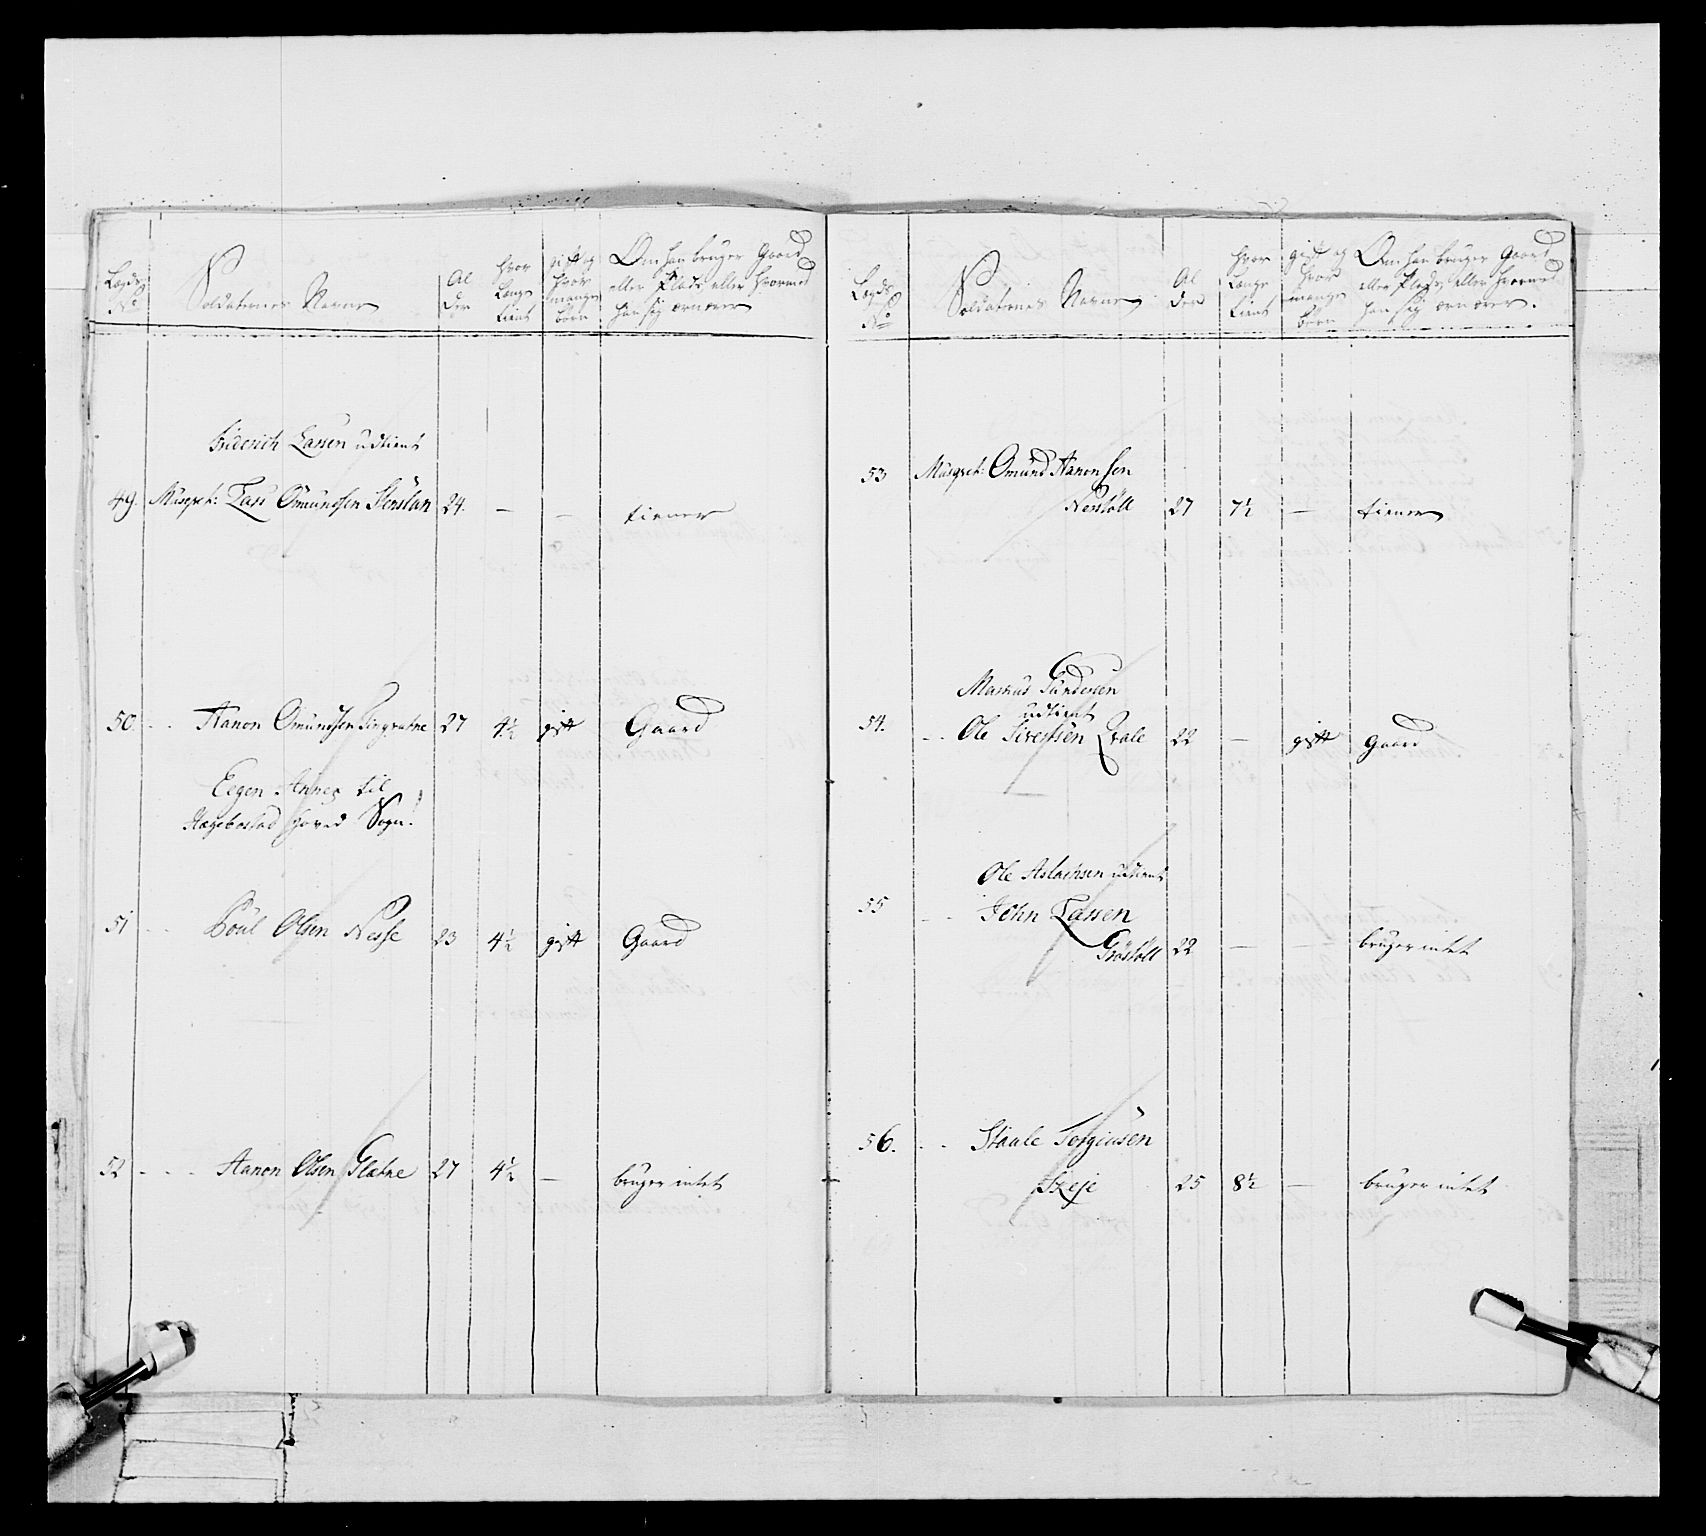 Lægds No
Soldaternes Navne
Al der
hvor Længe tient
gift og hvor mange børn
Om han bruger Gaard eller Plads eller hvormed han sig ernærer
Friderich Larsen udtient
49. Musqvet: Lars Omundsen Stenslan 24. — — tiener
50. - - Aanon Omundsen 27 4½ gift Gaard
Eegen Annex til
Hægebostad Hoved Sogn!
51 - - Poul Olsen Nesse 23 4½ gift Gaard
52 - - - Aanon Olsen Glatne 27 4½ — bruger intet
Lægds No
Soldaternes Navne
Al der
hvor Længe tient
gift og hvor mange børn
Om han bruger Gaard eller Plads eller hvormed han sig ernærer.
53 Musqvet: Omund Aanonsen
Nestöll 27 7½ — tiener
Markus Gundersen
udtient
54. - - Ole Sivertsen 22 — gift Gaard
Ole Aslachsen udtient
55 - - John Larsen
22 — — bruger intet
56. - - Staale Torgiusen
Skeje 25 8½ — bruger intet